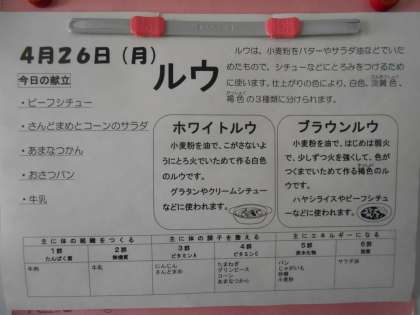 4月26日(月)
ルウ
ルウは、小麦粉をバターやサラダ油などでいた
めたもので、シチューなどにとろみをつけるため
に使います。仕上がりの色により、白色、淡黄色、
褐色の3種類に分けられます。
今日の献立
・ビーフシチュー
・さんどまめとコーンのサラダ
・あまなつかん
・おさつパン
・牛乳
ホワイトルウ
小麦粉を油で、こがさないよ
うにとろ火でいためて作る白色
のルウです。
グラタンやクリームシチュー
などに使われます。
ブラウンルウ
小麦粉を油で、はじめは弱火
で、少しずつ火を強くして、色が
つくまでいためて作る褐色のル
ウです。
ハヤシライスやビーフシチ
ューなどに使われます。
主に体の組織をつくる 主に体の調子を整える 主にエネルギーになる
1群 2群 3群 4群 5群 6群
たんぱく質 無機質 ビタミンA ビタミンC 炭水化物 脂肪
牛肉 牛乳 にんじん たまねぎ パン サラダ油
さんどまめ グリンピース じゃがいも
コーン 砂糖
あまなつかん 小麦粉